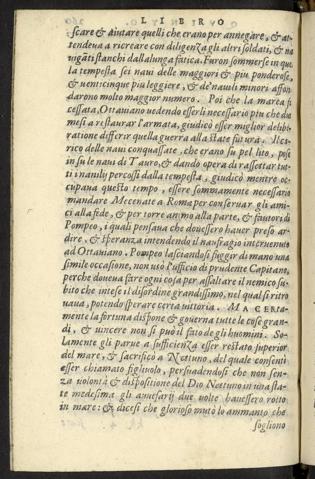 LIBRO
scare & aiutare quelli che erano per annegare, & at-
tendeua a ricreare con diligenza gli altri soldati, & na
uigāti stanchi dalla lunga fatica. Furon sommerse in que
la tempesta sei naui delle maggiori & piu ponderose,
& uenticinque piu leggiere, & de nauili minori affon
darono molto maggior numero. Poi che la marea fu
cessata, Ottauiano uedendo esserli necessario piu che due
mesi a restaurar l'armata, giudicò esser miglior delibe
ratione differir quella guerra alla state futura. Il ca
rico delle naui conquassate, che erano su pel lito, pose
in su le naui di Tauro, & dando opera di rassettar tut-
ti i nauily percossi dalla tempesta, giudicò mentre oc-
cupaua questo tempo, essere sommamente necessario
mandare Mecenate a Roma per conseruar gli ami-
ci alla fede, & per torre animo alla parte, & fautori di
Pompeo, i quali pensaua che douessero hauer preso ar-
dire, & speranza intendendo il naufragio interuenuto
ad Ottauiano. Pompeo lasciandosi fuggir di mano una
simile occasione, non usò l'ufficio di prudente Capitano,
perche doueua fare ogni cosa per assaltare il nemico su-
bito che intese il disordine grandissimo, nel qual si ritro
uaua, potendo sperare certa uittoria. MA CERTA-
mente la fortuna dispone & gouerna tutte le cose gran-
di, & uincere non si può il fato de gli huomini. So-
lamente gli parue a sufficienza esser restato superior
del mare, & sacrificò a Nettuno, del quale consentì
esser chiamato figliuolo, persuadendosi che non sen-
za uolontà & dispositione del Dio Nettuno in una sta-
te medesima gli auuersarij due uolte hauessero rotto
in mare: & dicesi che glorioso mutò lo ammanto che
sogliono